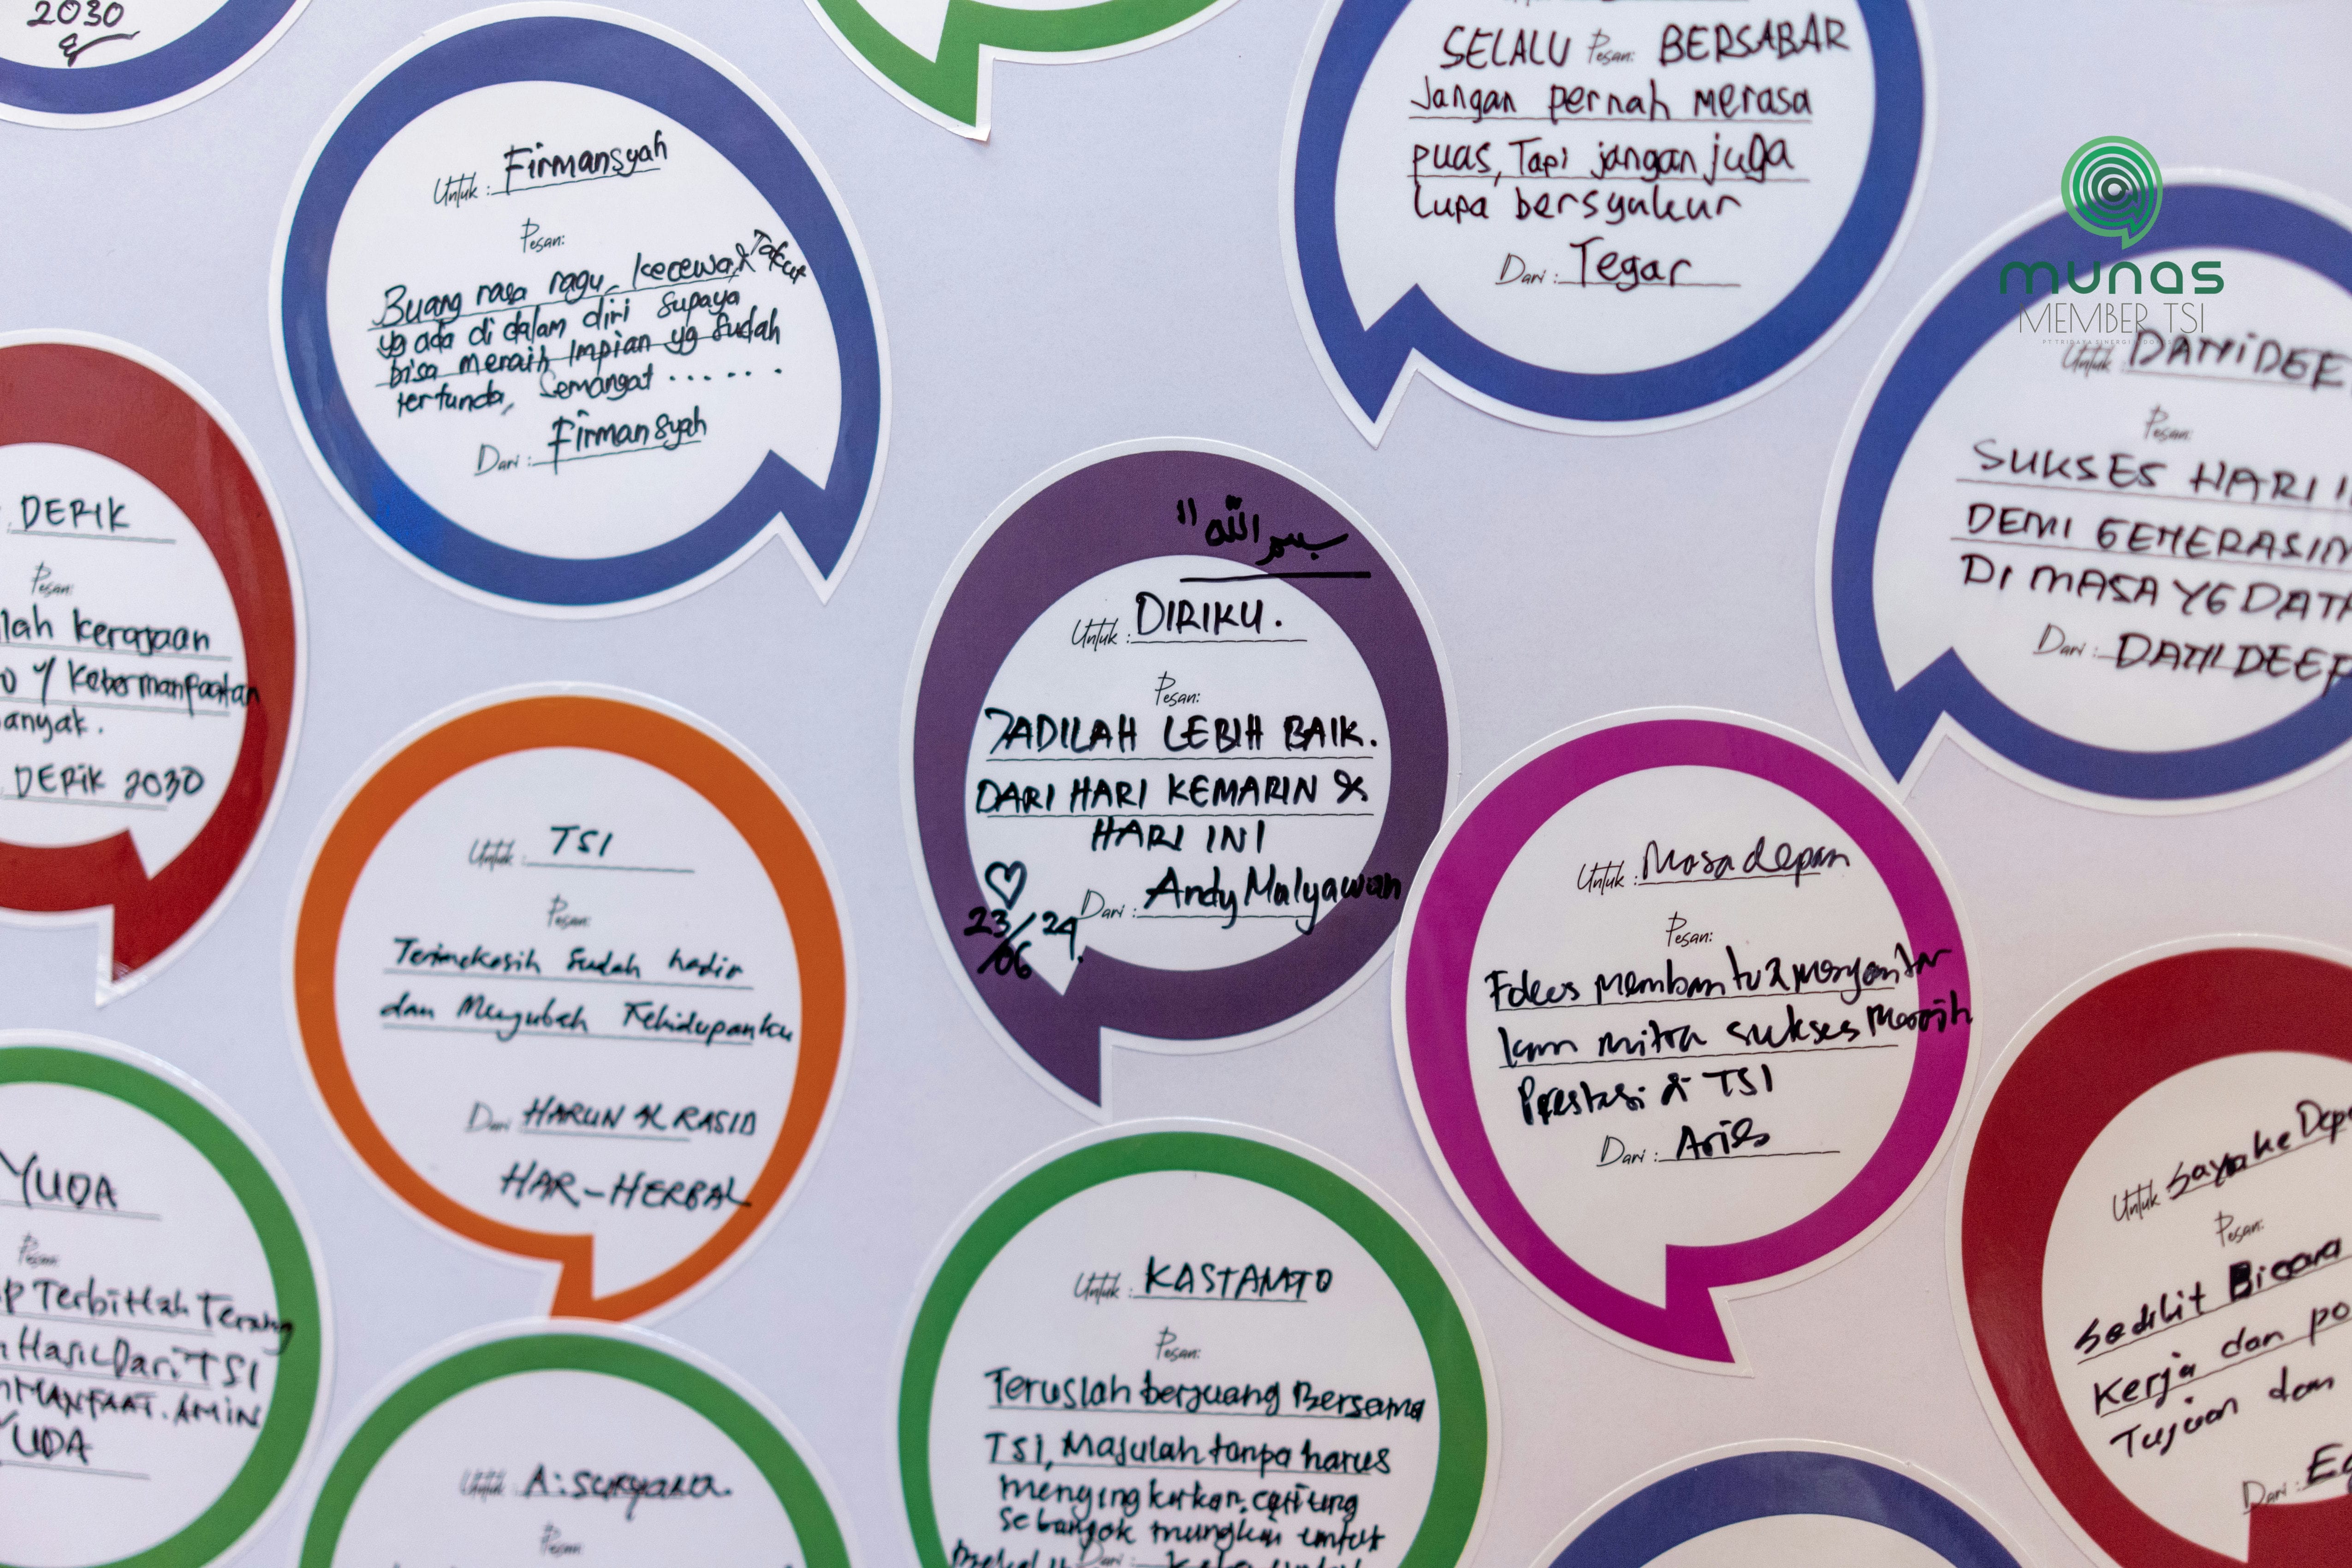 2030
Untuk : Firmansyah
Pesan:
Buang rasa ragu, kecewa, & Takut
yg ada di dalam diri supaya
bisa meraih Impian yg sudah
tertunda, Semangat ......
Dari : Firmansyah
SELALU Pesan: BERSABAR
Jangan pernah merasa
puas, Tapi jangan juga
lupa bersyukur
Dari : Tegar
munas
MEMBER TSI
Untuk DANIDEE
Pesan:
SUKSES HARI I
DEMI GENERASI
DI MASA YG DAT
Dari : DANIDEEF
DERIK
Pesan:
lah kerajaan
y kebermanfaatan
anyak.
DERIK 2030
"بسم الله
Untuk : DIRIKU.
Pesan:
JADILAH LEBIH BAIK.
DARI HARI KEMARIN &
HARI INI
Dari : Andy Malyawan
23/06 24.
Untuk : TSI
Pesan:
Terimakasih Sudah hadir
dan Mengubah Kehidupanku
Dari HARUN AL RASID
HAR-HERBAL
Untuk : Masa depan
Pesan:
Fokus Membantu & Mengantar
kan mitra sukses Meraih
Prestasi di TSI
Dari : Aries
YUDA
Pesan:
p Terbitlah Terang
Hasil Dari TSI
MANFAAT. AMIN
YUDA
Untuk : A. Suryana.
Pesan
Untuk : KASTAMTO
Pesan:
Teruslah berjuang Bersama
TSI, Majulah tanpa harus
menyingkirkan,
sebanyak mungkin untuk
Dari :
Untuk Saya ke Dep
Pesan:
Sedikit Bicara
Kerja dan po
Tujuan dan
Dari : Ed